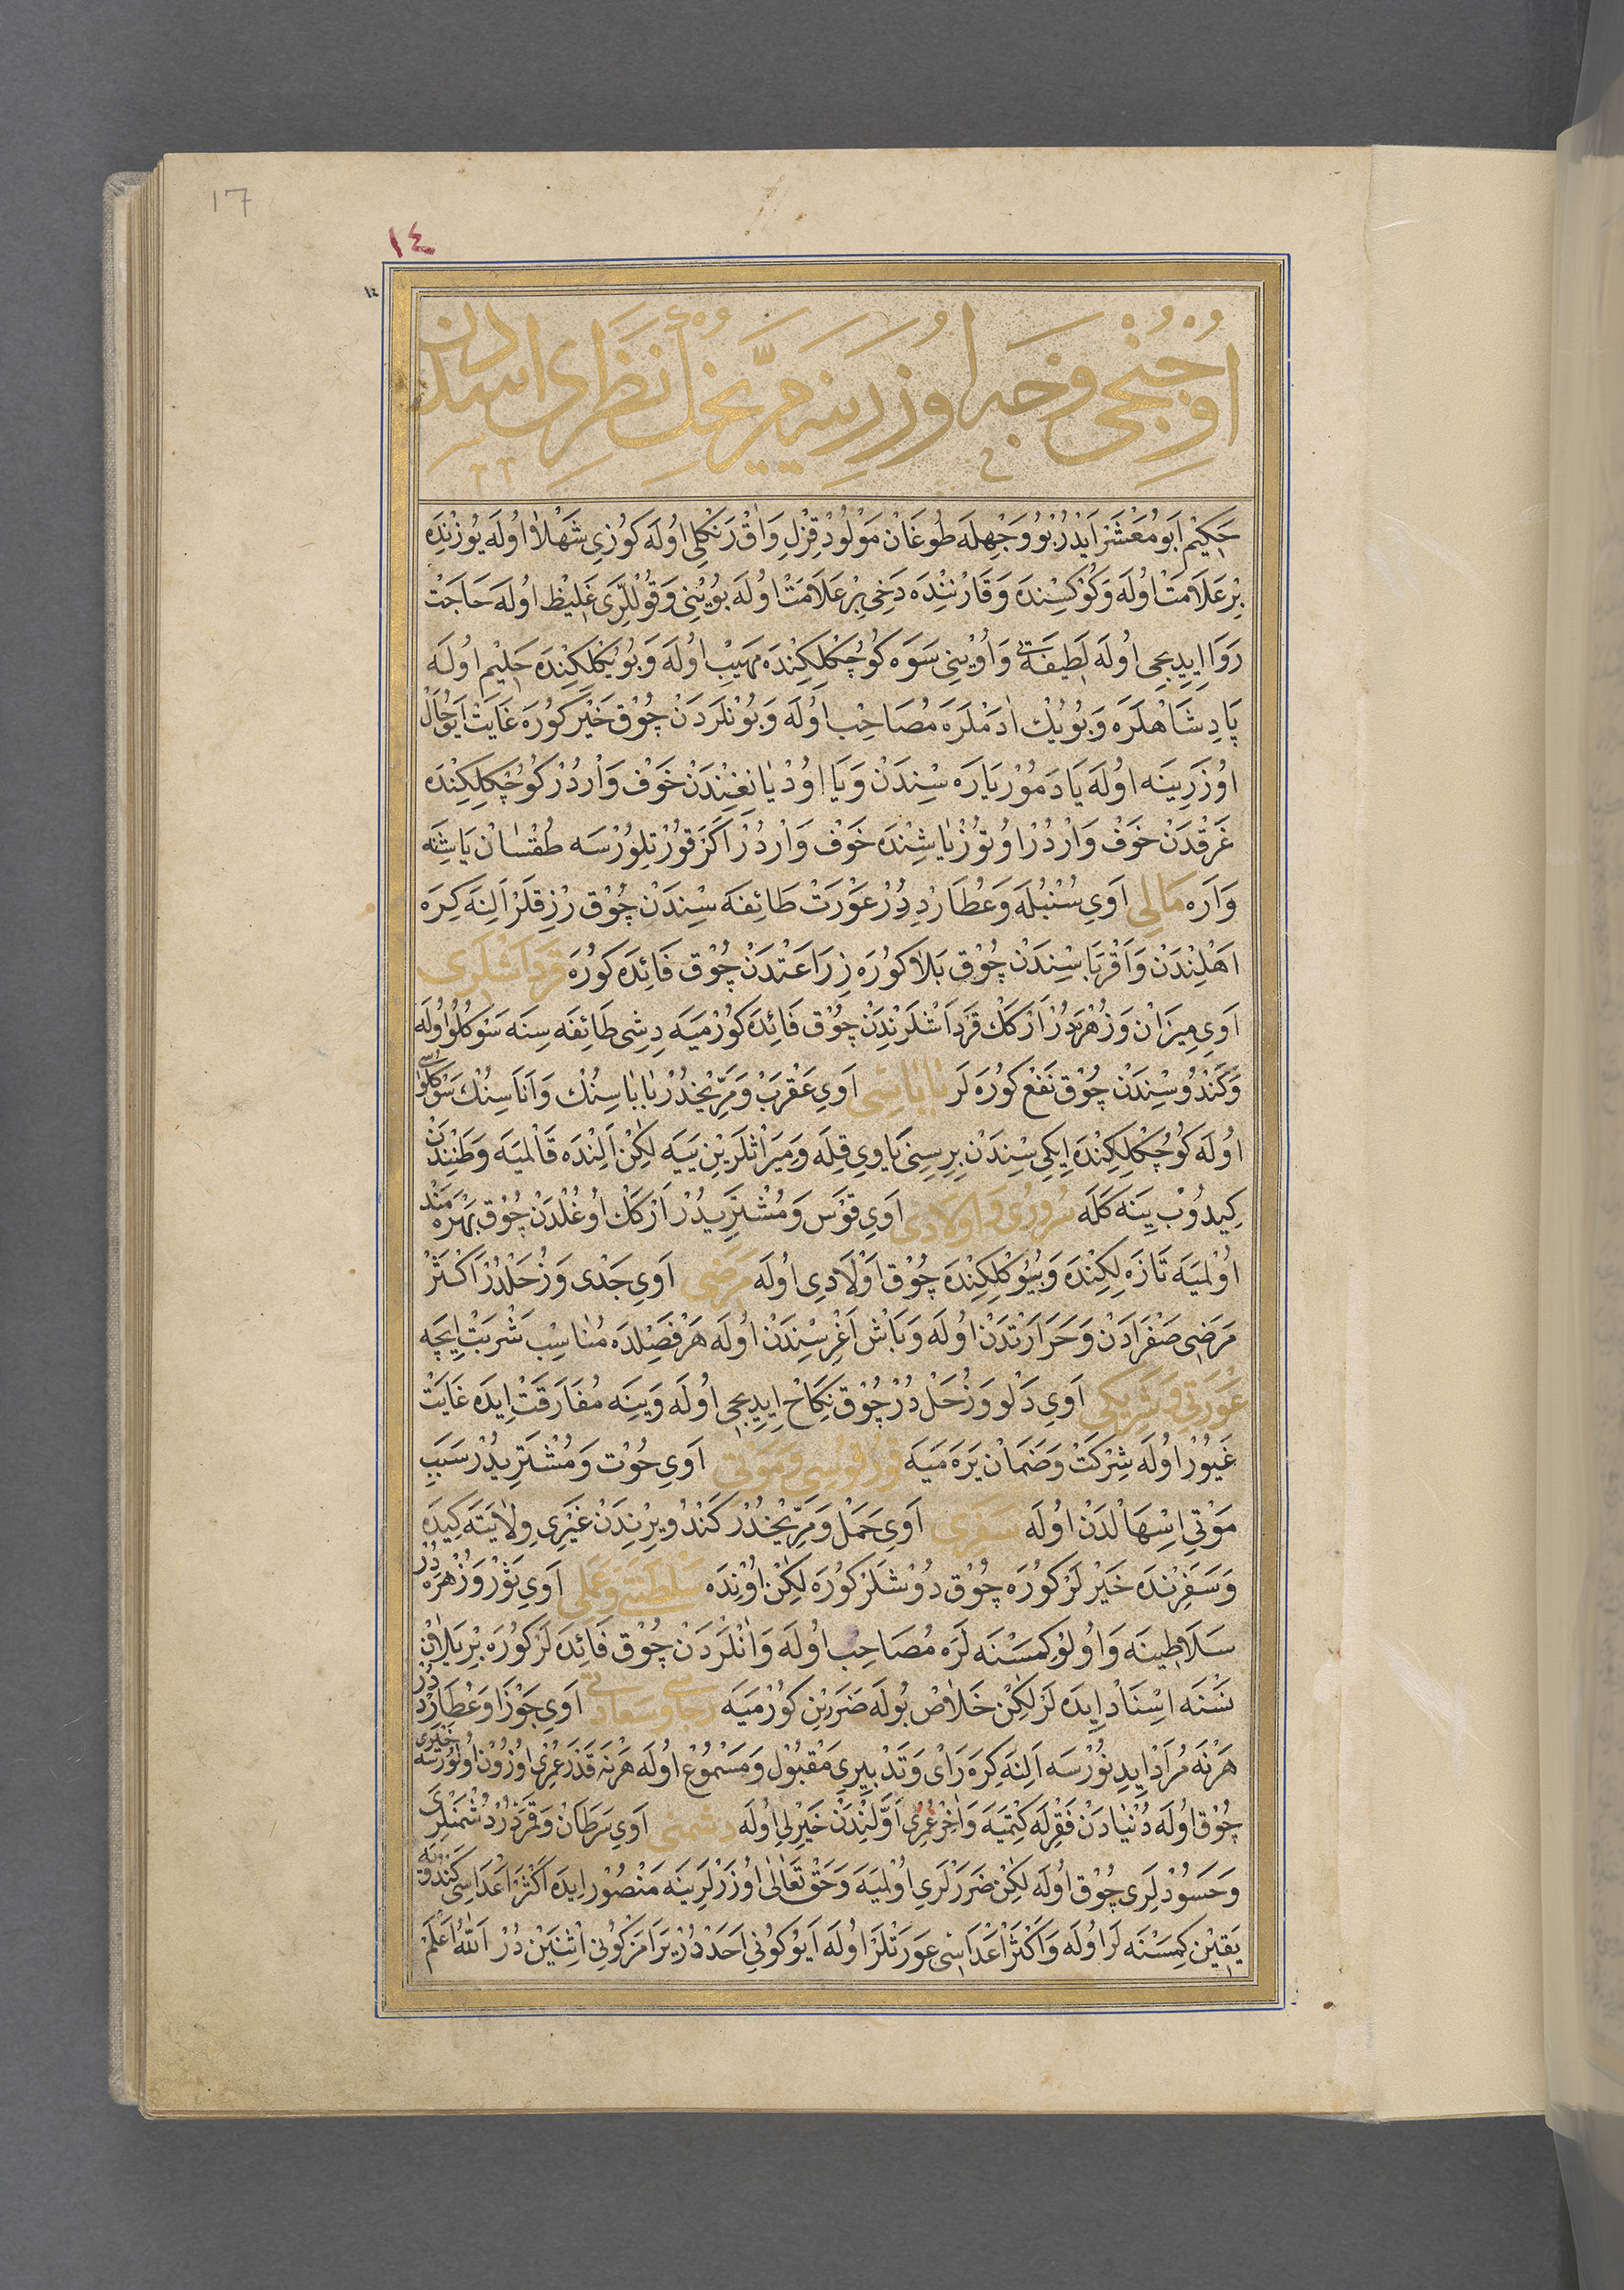 17
١٤
١٤
اوچنجی وجه اوزرینه مریخك نظری اسددن
حكیم ابو معشر ایدر بو وجهله طوغان مولود قزل واق رنكلی اوله كوزی شهلا اوله یوزنده
بر علامت اوله وكوكسنده وقارننده دخی بر علامت اوله بوینی وقوللری غلیظ اوله حاجت
روا ایدیجی اوله لطیفه یی واوینی سوه كوچكلكنده مهیب اوله وبویكلكنده حلیم اوله
پادشاهلره وبویك ادملره مصاحب اوله وبونلردن چوق خیر كوره غایت ایو حال
اوزرینه اوله یا دمور یاره سندن ویا اود یانغندن خوف واردر كوچكلكنده
غرقدن خوف واردر اوتوز یاشنده خوف واردر اكر قورتلورسه طقسان یاشنه
واره مالی اوی سنبله وعطارددر عورت طائفه سندن چوق رزقلر النه كیره
اهلندن واقرباسندن چوق بلا كوره زراعتدن چوق فائده كوره قرداشلری
اوی میزان وزهره در اركك قرداشلرندن چوق فائده كورمیه دیشی طائفه سنه سوكلو اوله
وكندوسندن چوق نفع كوره لر باباسی اوی عقرب ومریخدر باباسنك واناسنك سوكلواسی
اوله كوچكلكنده ایكی سندن بریسنی یاوی قله ومیراثلرین ییه لكن النده قالمیه وطنندن
كیدوب ینه كله سروری واولادی اوی قوس ومشتریدر اركك اوغلدن چوق بهره مند
اولمیه تازه لكنده وبیوكلكنده چوق اولادی اوله مرضی اوی جدی وزحلدر اكثر
مرضی صفرادن وحرارتدن اوله وباش اغرسندن اوله هر فصلده مناسب شربت ایچه
عورتی وشریكی اوی دلو وزحل در چوق نكاح ایدیجی اوله وینه مفارقت ایده غایت
غیور اوله شركت وضمان یره میه قورقوسی وموتی اوی حوت ومشتریدر سبب
موتی اسهالدن اوله سفری اوی حمل ومریخدر كندو یرندن غیری ولایته كیده
وسفرنده خیرلر كوره چوق دوشلر كوره لكن اوننده سلطنتی وعملی اوی ثور وزهره در
سلاطینه واولو كمسنه لره مصاحب اوله وانلردن چوق فائده لر كوره بر یلان
نسنه اسناد ایده لر لكن خلاص بوله ضررین كورمیه رجاسی وسعادتی اوی جوزا وعطارددر
هرنه مراد ایدنورسه النه كیره رای وتدبیری مقبول ومسموع اوله هرنه قدر عمری اوزون اولورسه خیری
چوق اوله دنیادن فقرله كتمیه واخر عمری اولندن خیرلی اوله دشمنی اوی سرطان وقمردر دشمنلری
وحسودلری چوق اوله لكن ضررلری اولمیه وحق تعالی اوزرلرینه منصور ایده اكثر اعداسی كندونه
یقین كمسنه لر اوله واكثر اعداسی عورتلر اوله ایو كونی احددر یرامز كونی اثنین در الله اعلم